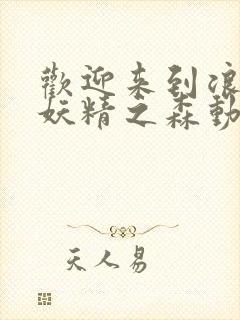 歡迎来到浪
妖精之森動
天人易